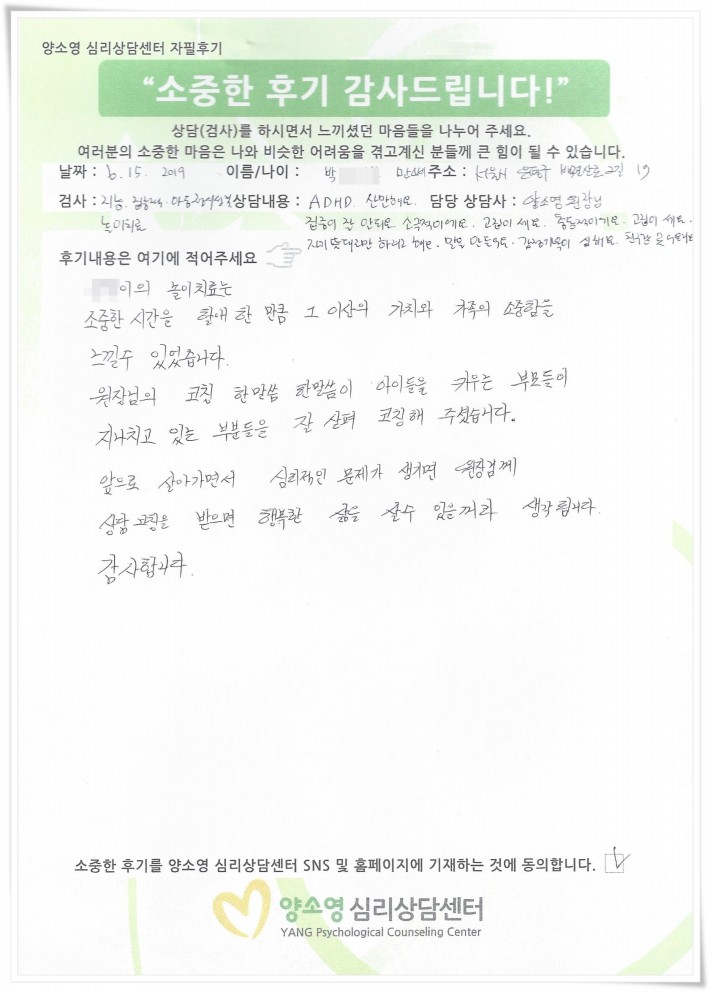 양소영 심리상담센터 자필후기
“소중한 후기 감사드립니다!”
상담(검사)를 하시면서 느끼셨던 마음들을 나누어 주세요.
여러분의 소중한 마음은 나와 비슷한 어려움을 겪고계신 분들께 큰 힘이 될 수 있습니다.
날짜 : 6. 15. 2019 이름/나이 : 박 만 세 주소 : 서울시 은평구 19
검사 : 지능. 상담내용 : ADHD. 산만해요. 담당 상담사 : 양소영 원장님
놀이치료 집중이 잘 안되요. 소극적이에요. 고집이 세요. 충동적이에요. 고집이 세요.
지 뜻대로만 하려고 해요. 말을 안듣어요. 감정기복이 심해요. 친구랑
후기내용은 여기에 적어주세요
이의 놀이치료는
소중한 시간을 할애 한 만큼 그 이상의 가치와 가족의 소중함을
느낄수 있었습니다.
원장님의 코칭 한말씀 한말씀이 아이들을 키우는 부모들이
지나치고 있는 부분들을 잘 살펴 코칭해 주셨습니다.
앞으로 살아가면서 심리적인 문제가 생기면 원장님께
상담 코칭을 받으면 행복한 삶을 살수 있을꺼라 생각됩니다.
감사합니다.
소중한 후기를 양소영 심리상담센터 SNS 및 홈페이지에 기재하는 것에 동의합니다.
양소영 심리상담센터
YANG Psychological Counseling Center